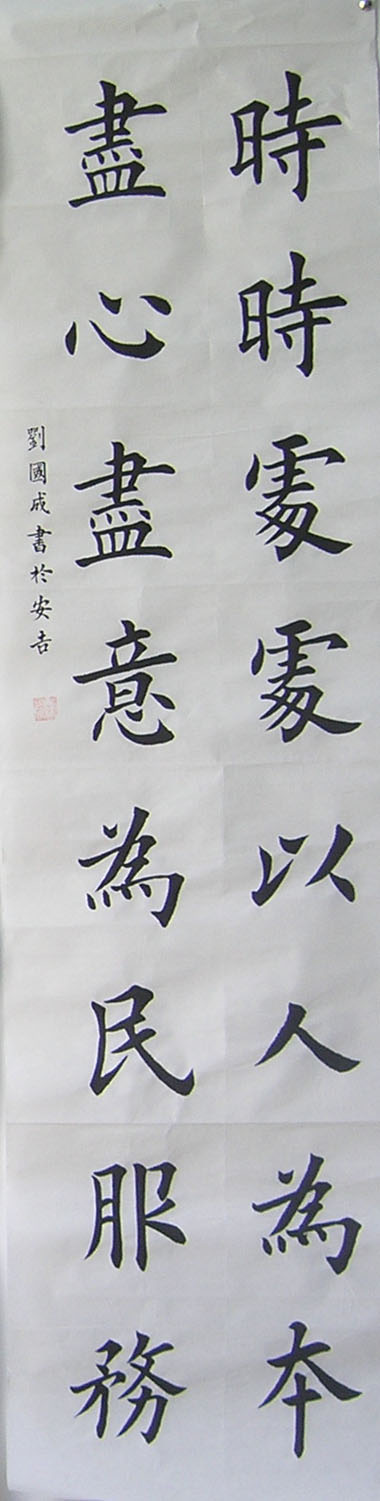 時時處處以人為本
盡心盡意為民服務
劉國成書於安吉